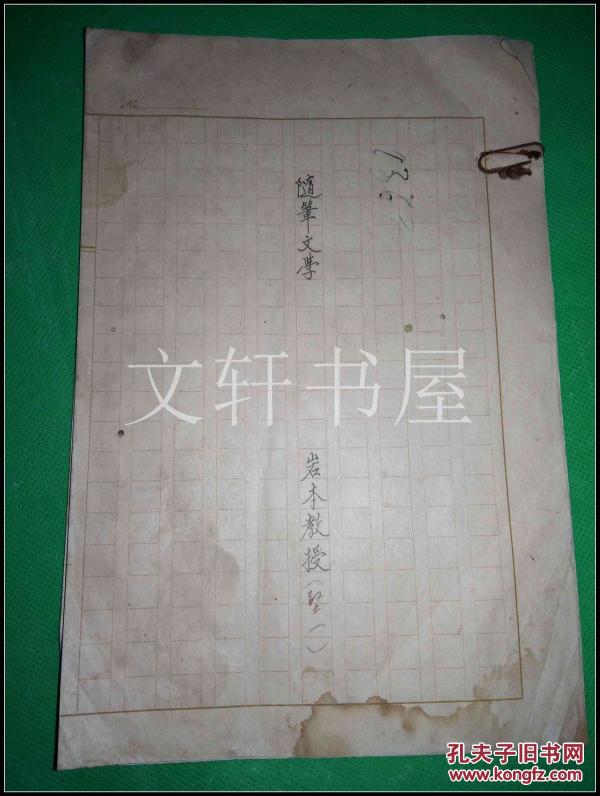 No
隨筆文學
文轩书屋
岩本教授(堅一)
孔夫子旧书网
www.kongfz.com